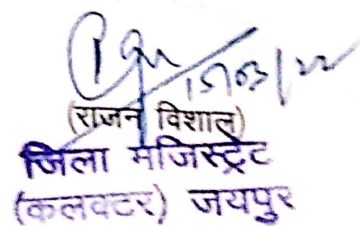 15/03/22
(राजन विशाल)
जिला मजिस्ट्रेट
(कलक्टर) जयपुर